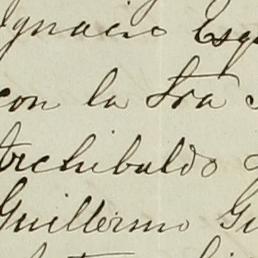 Ignacio Esq
con la Sra
Archibaldo
Guillermo Gu